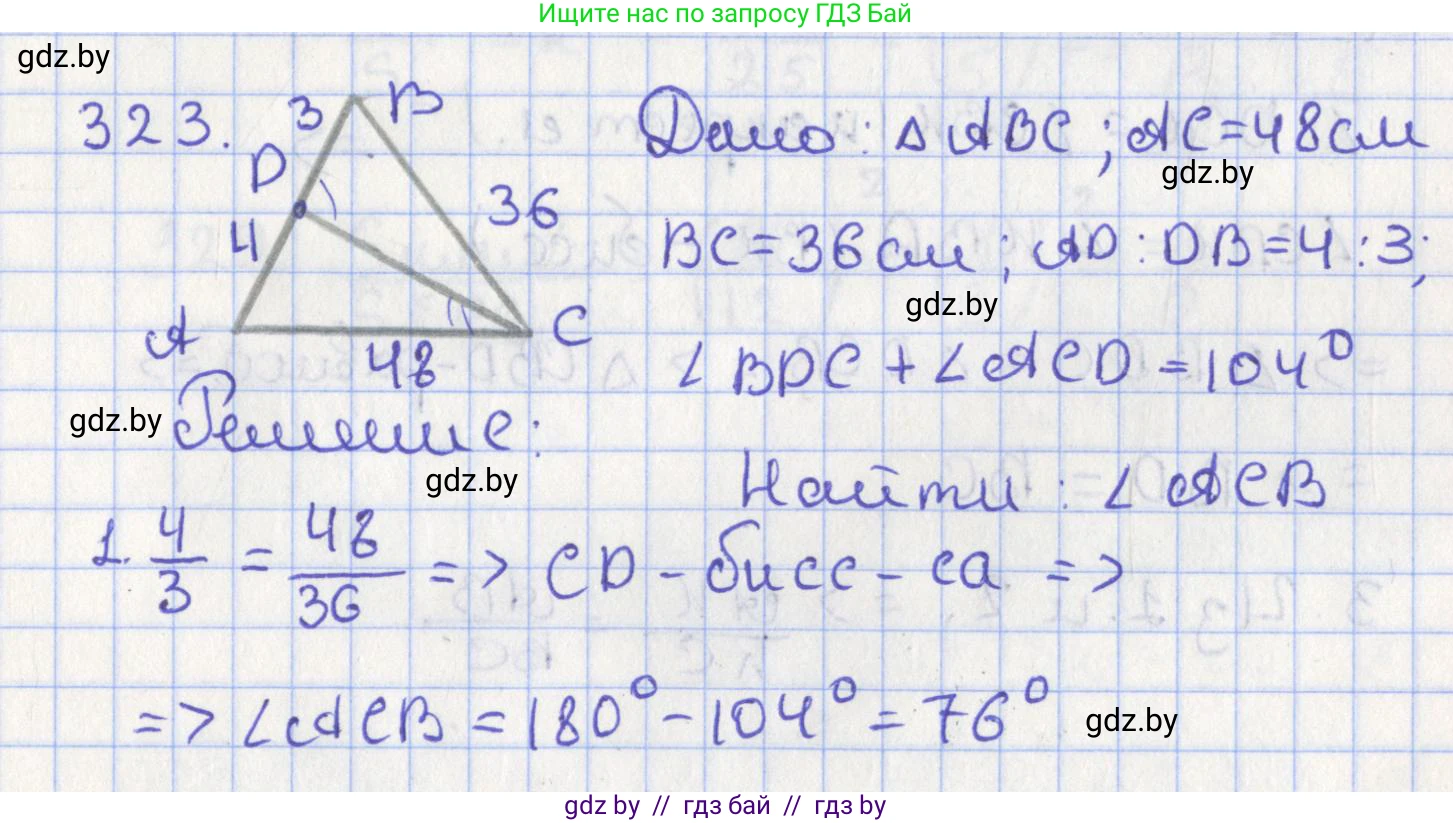 Ищите нас по запросу ГДЗ Бай
gdz.by
323.
3
B
D
4
36
A
48
C
Дано: △ ABC ; AC=48см
gdz.by
BC=36см ; AD : DB=4 : 3;
gdz.by
∠ BDC + ∠ ACD =104°
gdz.by
Решение:
gdz.by
Найти : ∠ ACB
1. 4/3 = 48/36 => CD - бисс - са =>
=> ∠ ACB = 180° - 104° = 76°
gdz.by
gdz by // гдз бай // гдз by